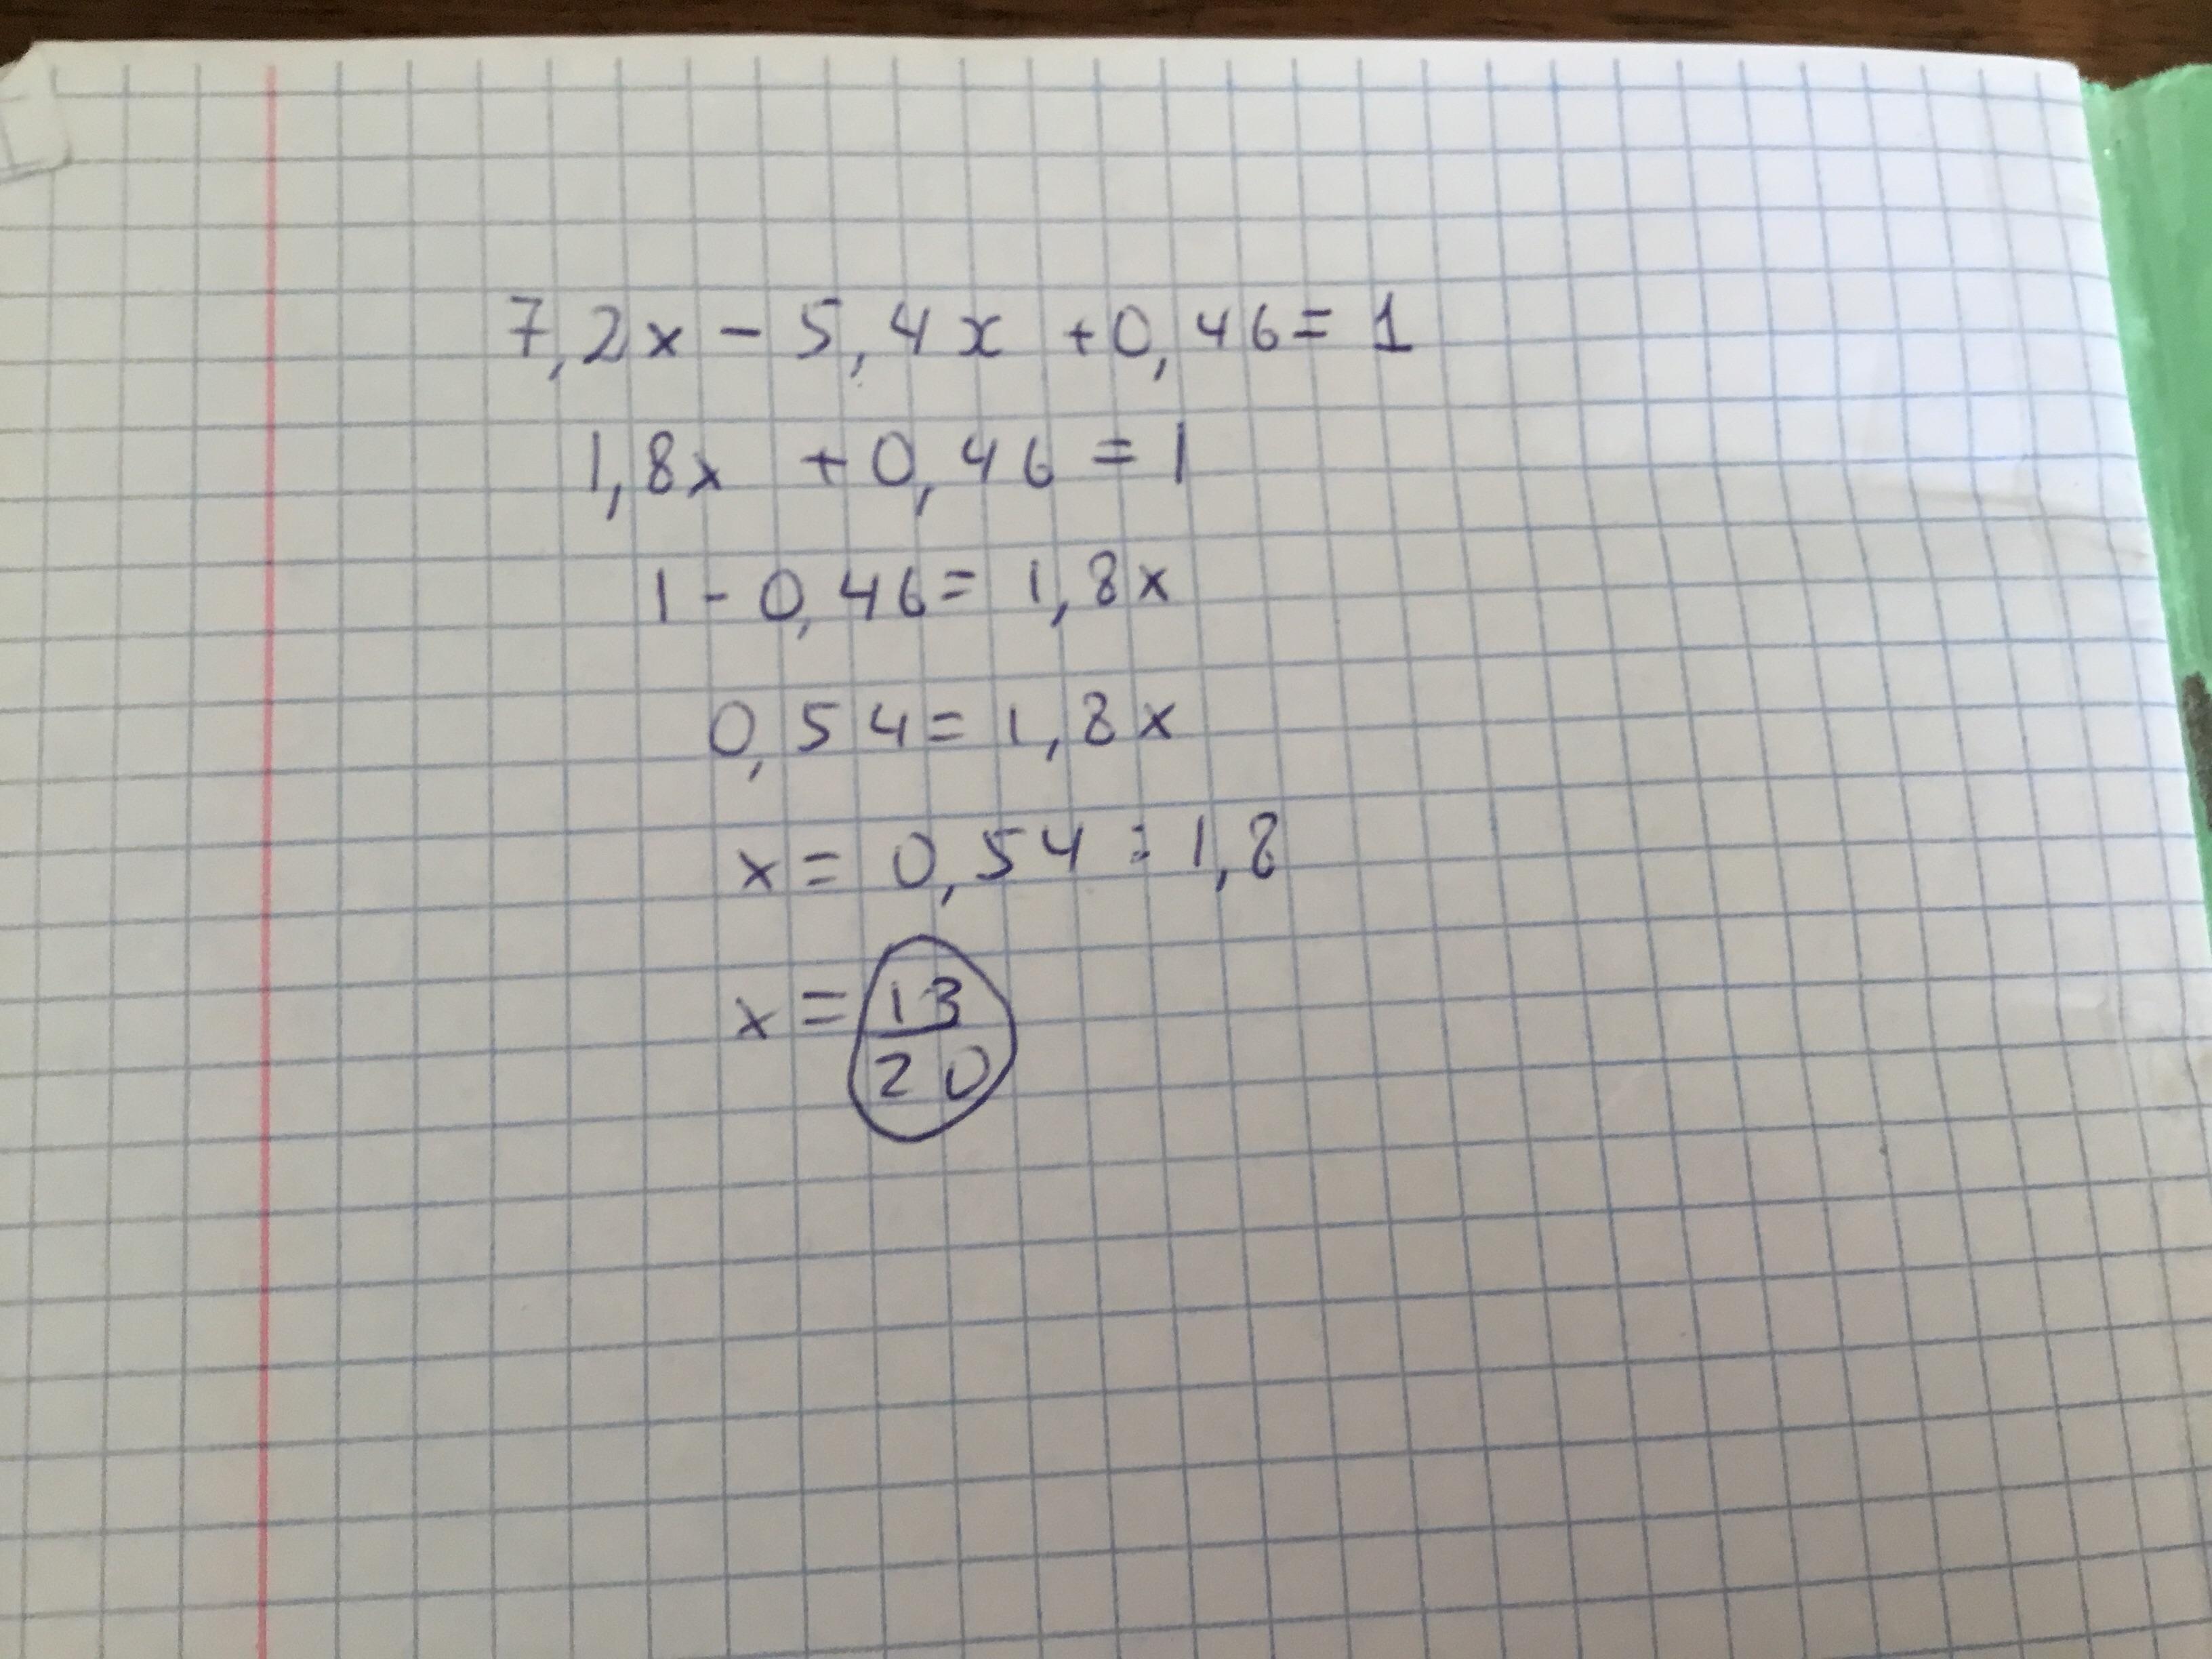 7,2x - 5,4x + 0,46 = 1
1,8x + 0,46 = 1
1 - 0,46 = 1,8x
0,54 = 1,8x
x = 0,54 : 1,8
x = 13/20